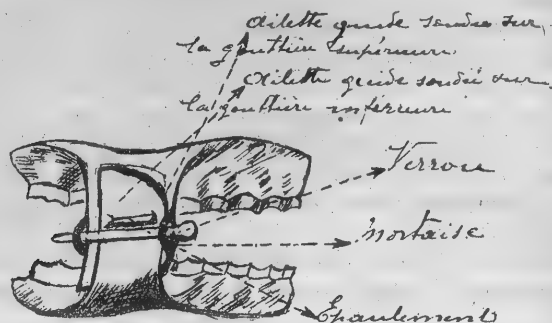 Ailette guide soudée sur
la gouttière supérieure.
Ailette guide soudée sur
la gouttière inférieure
Verrou
Mortaise
Epaulement